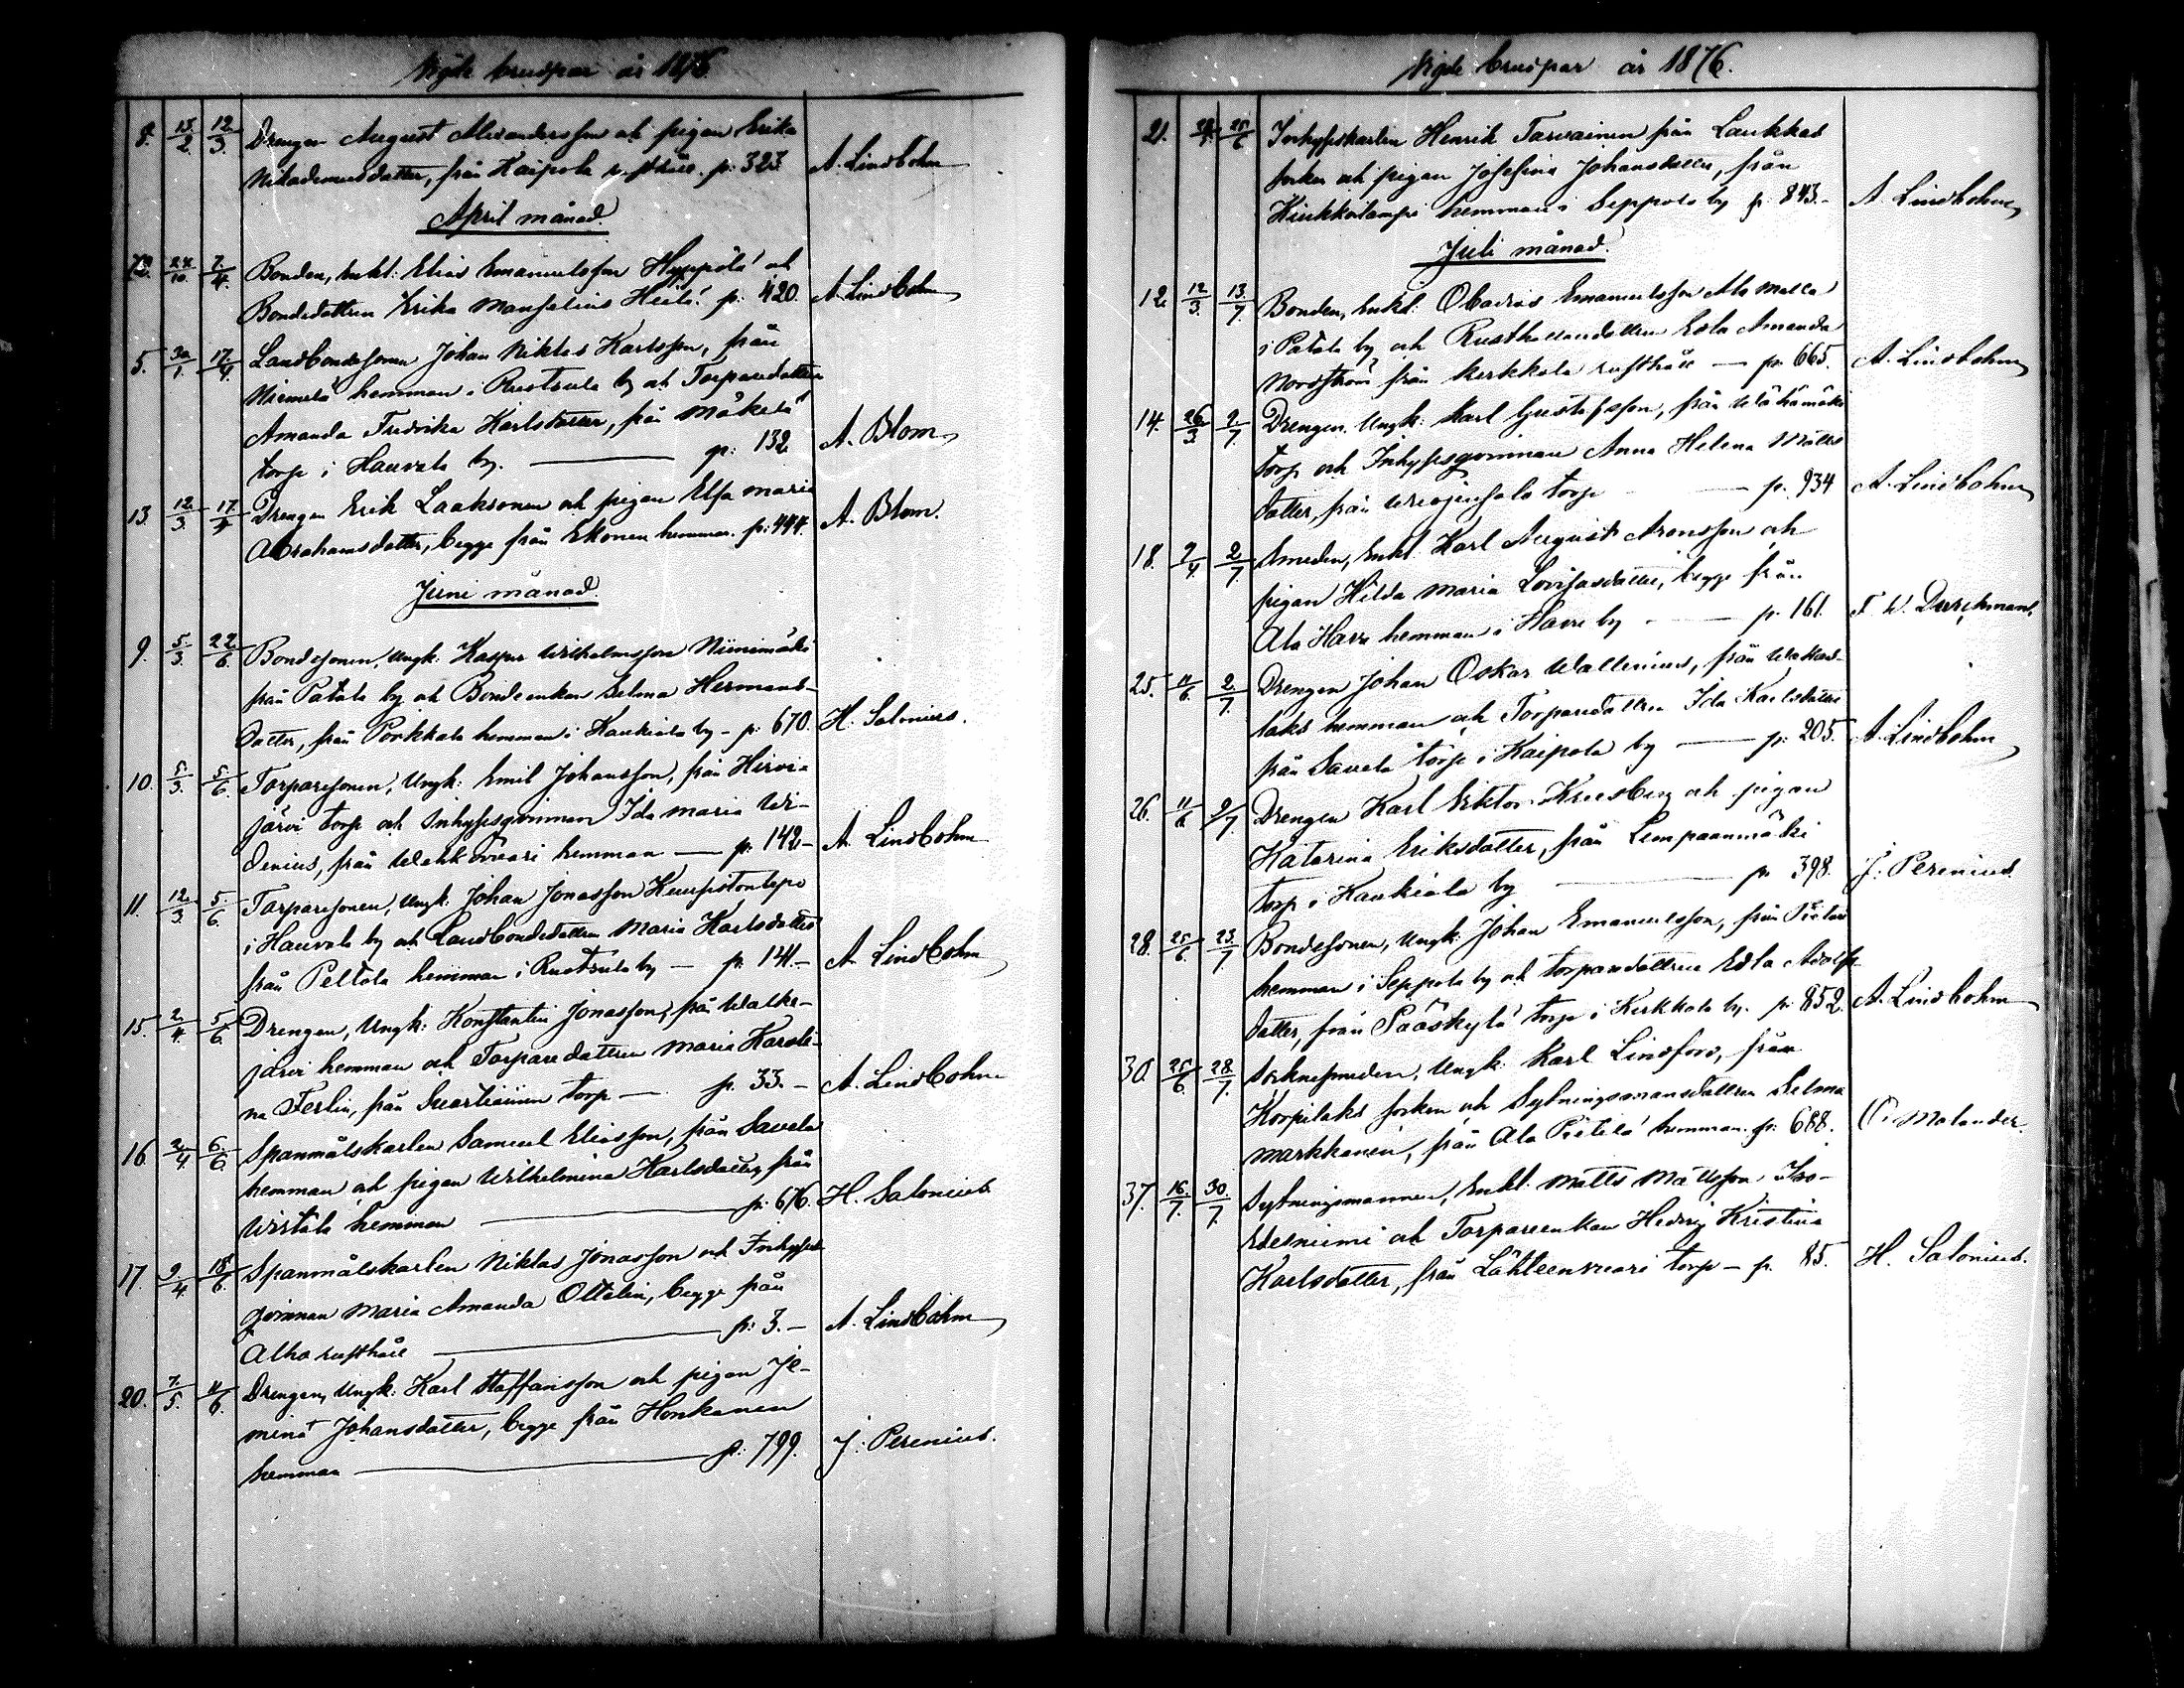 Vigde brudpar år 1876.
8. 13/2 12/3. Drengen August Alexandersson och pigan Erika
Nikademusdotter, från Kaipola rusthåll. p. 323. A. Lindbohm
April månad.
24/10. 2/4. Bonden, Enkl: Elias Emanuelsson Hyppölä och
Bondedottren Erika Manselius Heilä. p: 420. A. Lindbohm
5. 30/1. 17/4. Landbondesonen Johan Niklas Karlsson, från
Niemelä hemman i Ruotsula by och Torparedottren
Amanda Fredrika Karlsdotter, från Mäkelä
torp i Hauvala by. p: 132 A. Blom
13. 12/3. 17/4 Drengen Erik Laaksonen och pigan Elsa Maria
Abrahamsdotter, begge från Ekonen hemman. p: 444. A. Blom.
Juni månad.
9. 5/3. 22/6. Bondesonen, Ungk: Kasper Wilhelmsson Niinimäki
från Patala by och Bondeenkan Selma Hermans-
dotter, från Porkkala hemman i Kaukiala by - p: 670. H. Salonius.
10. 5/3. 5/6. Torparesonen, Ungk: Emil Johansson, från Hirvi-
järvi torp och Inhysesqvinnan Ida Maria Wi-
denius, från hemman p. 142- A. Lindbohm
11. 12/3. 5/6. Torparesonen, Ungk: Johan Jonasson
i Hauvala by och Landbondedottren Maria Karlsdotter
från Peltola hemman i Ruotsula by - p. 141.- A. Lindbohm
15. 2/4 5/6. Drengen, Ungk: Konstantin Jonasson, från Walke-
järvi hemman och Torparedottren Maria Karoli-
na Ferlin, från torp - p. 33. - A. Lindbohm
16. 2/4. 6/6. Spanmålskarlen Samuel Eliasson, från Savela
hemman och pigan Wilhelmina Karlsdotter, från
Wistala hemman p: 676. H. Salonius.
17. 9/4 18/6. Spanmålskarlen Niklas Jonasson och Inhyses
qvinnan Maria Amanda Ottelin, begge från
Alho rusthåll p: 3.- A. Lindbohm
20. 7/5. 11/6. Drengen, Ungk: Karl Staffansson och pigan Je-
mina Johansdotter, begge från Honkanen
hemman p: 799. J: Perenius.
Vigde brudpar år 1876.
21. 25/6 Inhyseskarlen Henrik Tarvainen från Laukkas
socken och pigan Josefina Johansdotter, från
hemman i Seppola by p. 843.- A. Lindbohm
Juli månad.
12. 12/3. 13/7. Bonden, Enkl: Obadias Emanuelsson Ala Malla
i Patala by och Rusthållaredottren Edla Amanda
Nordström från Kerkkola rusthåll - p. 665. A. Lindbohm
14. 26/3. 9/7. Drengen, Ungk: Karl Gustafsson, från Wähämäki
torp och Inhysesqvinnan Anna Helena Matts
dotter, från torp p. 934 A. Lindbohm
18. 9/4. 2/7. Smeden, Enkl. Karl August Aronsson och
pigan Hilda Maria Lovisasdotter, begge från
Ala Havu hemman i Havu by p. 161. F. W. Durchman.
25. 11/6. 2/7. Drengen Johan Oskar Wallenius, från
laks hemman och Torparedottren Ida Karlsdotter
från Savela torp i Kaipola by p. 205. A. Lindbohm
26. 11/6 9/7. Drengen Karl Erktor Kreusberg och pigan
Katarina Eriksdotter, från Lempaanmäki
torp i Kaukiala by p. 398. J: Perenius.
28. 25/6. 23/7. Bondesonen, Ungk: Johan Emanuelsson, från
hemman i Seppola by och torparedottren Edla Adolfs
dotter, från Pääskylä torp i Kerkkola by. p. 852. A. Lindbohm
30. 25/6. 28/7. Sockensmeden, Ungk: Karl Lindfors, från
Korpilaks socken och Sytningsmansdottren Selma
Markkanen, från Ala Pietilä hemman. p: 688. O. Molander.
37. 16/7. 30/7. Sytningsmannen, Enkl. Matts Mattsson Iso-
Edesniemi och Torpareenkan Hedvig Kristina
Karlsdotter, från Lähteenvuori torp - p. 85. H. Salonius.